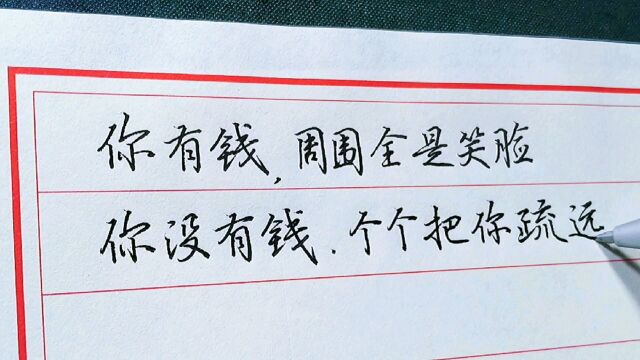 你有钱,周围全是笑脸
你没有钱.个个把你疏远